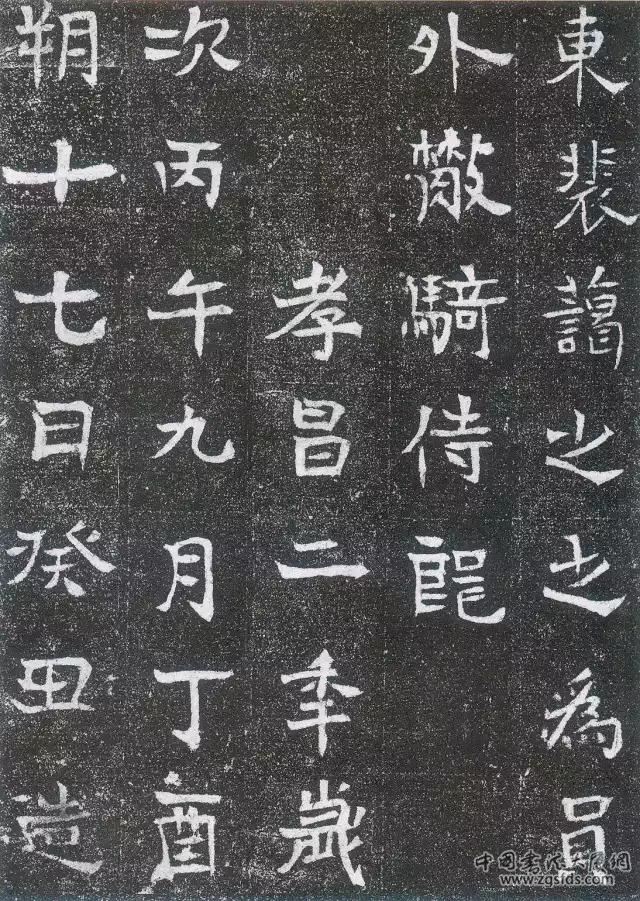 東裴藹之之爲員
外散騎侍郎
孝昌二年歲
次丙午九月丁酉
朔十七日癸丑造
www.zgsfds.com